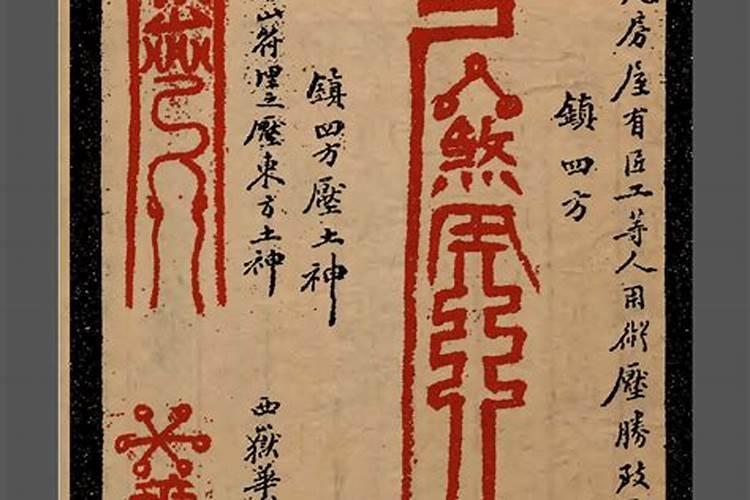 房屋有匠工等人用術壓勝致
鎮四方
煞
鎮四方壓土神
山符埋之壓東方土神
西嶽華